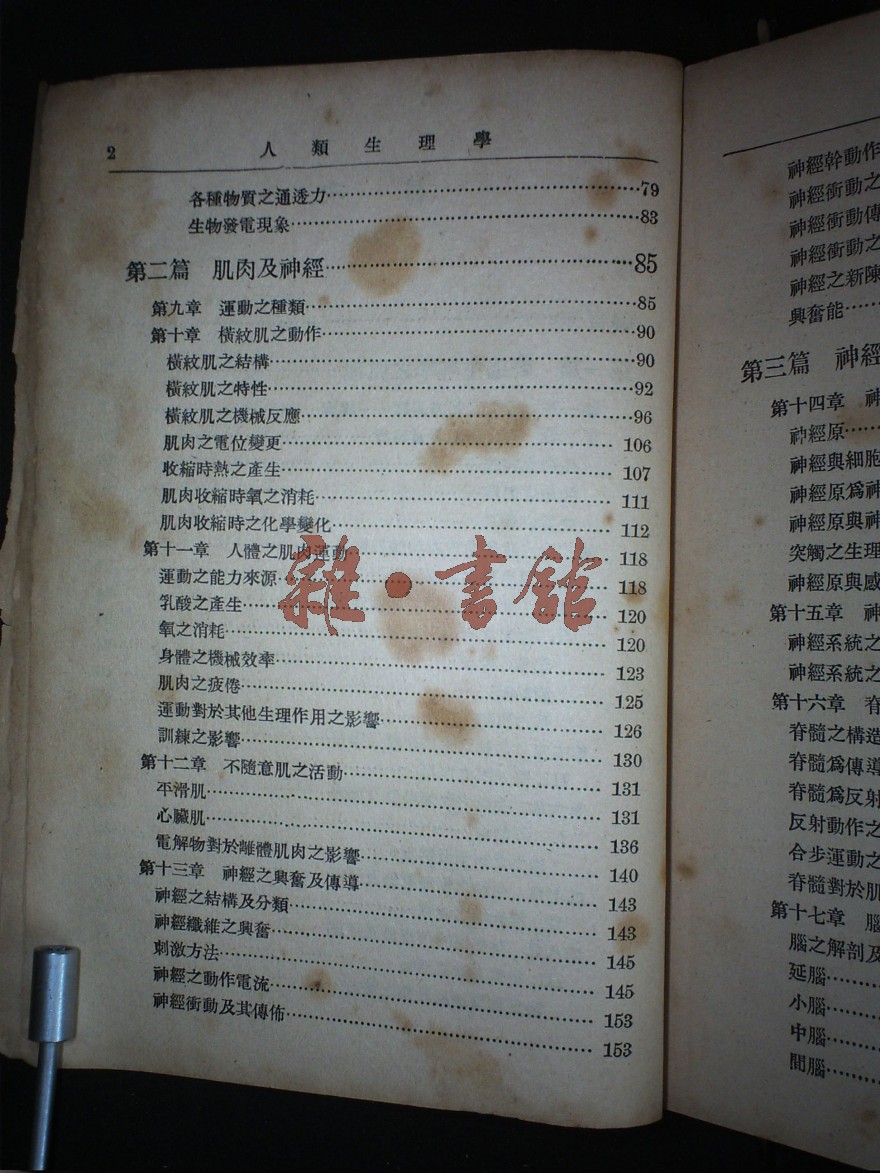 2 人類生理學
各種物質之通透力……79
生物發電現象……83
第二篇 肌肉及神經……85
第九章 運動之種類……85
第十章 橫紋肌之動作……90
橫紋肌之結構……90
橫紋肌之特性……92
橫紋肌之機械反應……96
肌肉之電位變更……106
收縮時熱之產生……107
肌肉收縮時氧之消耗……111
肌肉收縮時之化學變化……112
第十一章 人體之肌肉運動……118
運動之能力來源……118
乳酸之產生……120
氧之消耗……120
身體之機械效率……123
肌肉之疲倦……125
運動對於其他生理作用之影響……126
訓練之影響……130
第十二章 不隨意肌之活動……131
平滑肌……131
心臟肌……136
電解物對於離體肌肉之影響……140
第十三章 神經之興奮及傳導……143
神經之結構及分類……143
神經纖維之興奮……145
刺激方法……145
神經之動作電流……153
神經衝動及其傳佈……153
雜・書館
神經幹動作
神經衝動之
神經衝動傳
神經衝動之
神經之新陳
興奮能……
第三篇 神經
第十四章 神
神經原……
神經與細胞
神經原爲神
神經原與神
突觸之生理
神經原與感
第十五章 神
神經系統之
神經系統之
第十六章 脊
脊髓之構造
脊髓爲傳導
脊髓爲反射
反射動作之
合步運動之
脊髓對於肌
第十七章 腦
腦之解剖及
延腦……
小腦……
中腦……
間腦……